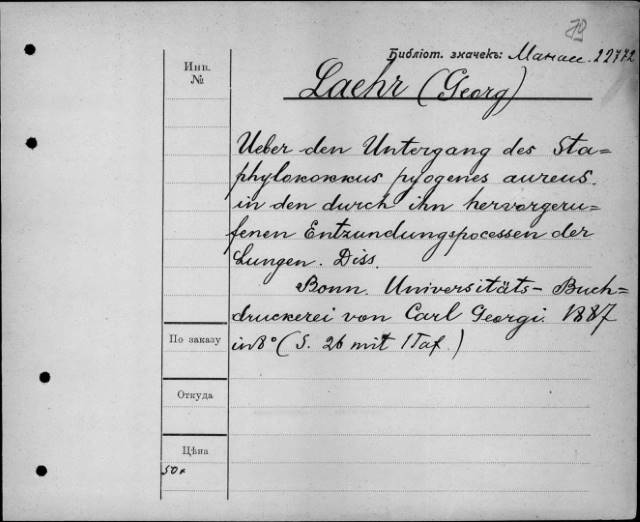 79
Библіот. значекъ: Манас. 22772
Инв.
№
Laehr (Georg)
Ueber den Untergang des Sta=
phylokokkus pyogenes aureus.
in den durch ihn hervorgeru=
fenen Entzundungspocessen der
Lungen. Diss.
Bonn. Universitäts- Buch=
druckerei von Carl Georgi. 1887
По заказу
in 8° (S. 26 mit 1 Taf.)
Откуда
Цѣна
50к